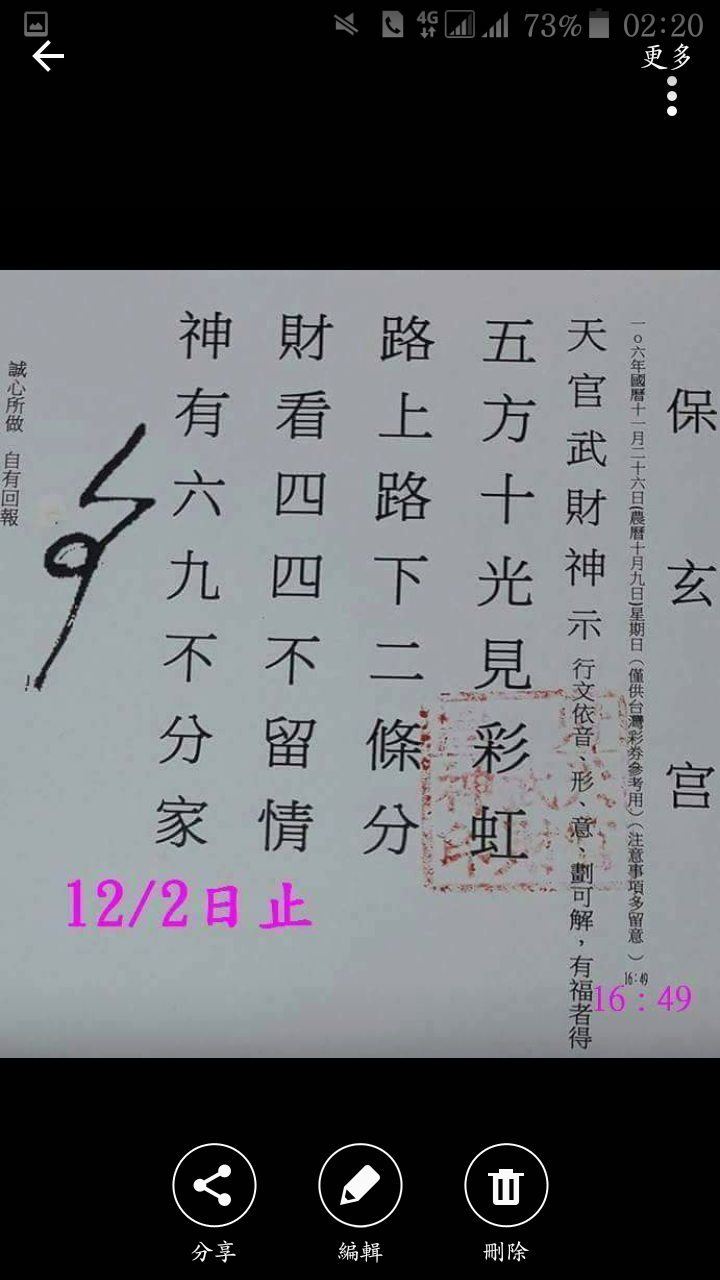 73% 02:20
更多
保玄宫
一0六年國曆十一月二十六日(農曆十月九日)星期日(僅供台灣彩券參考用)(注意事項多留意)
16:49
16:49
天官武財神示 行文依音、形、意、劃可解,有福者得
五方十光見彩虹
路上路下二條分
財看四四不留情
神有六九不分家
誠心所做 自有回報
12/2日止
分享
編輯
刪除